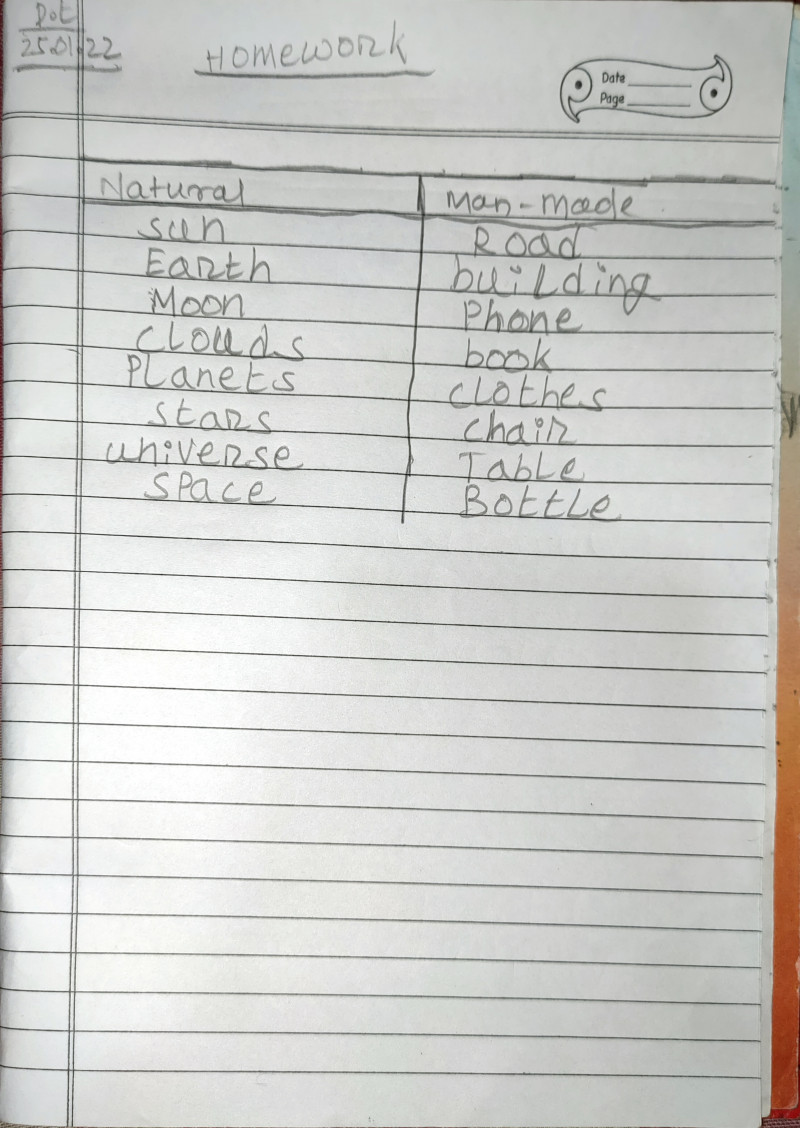 Dot
25.01.22
Homework
Date
Page
Natural Man-made
sun Road
Earth building
Moon Phone
clouds book
PLanets clothes
stars chair
universe Table
space Bottle